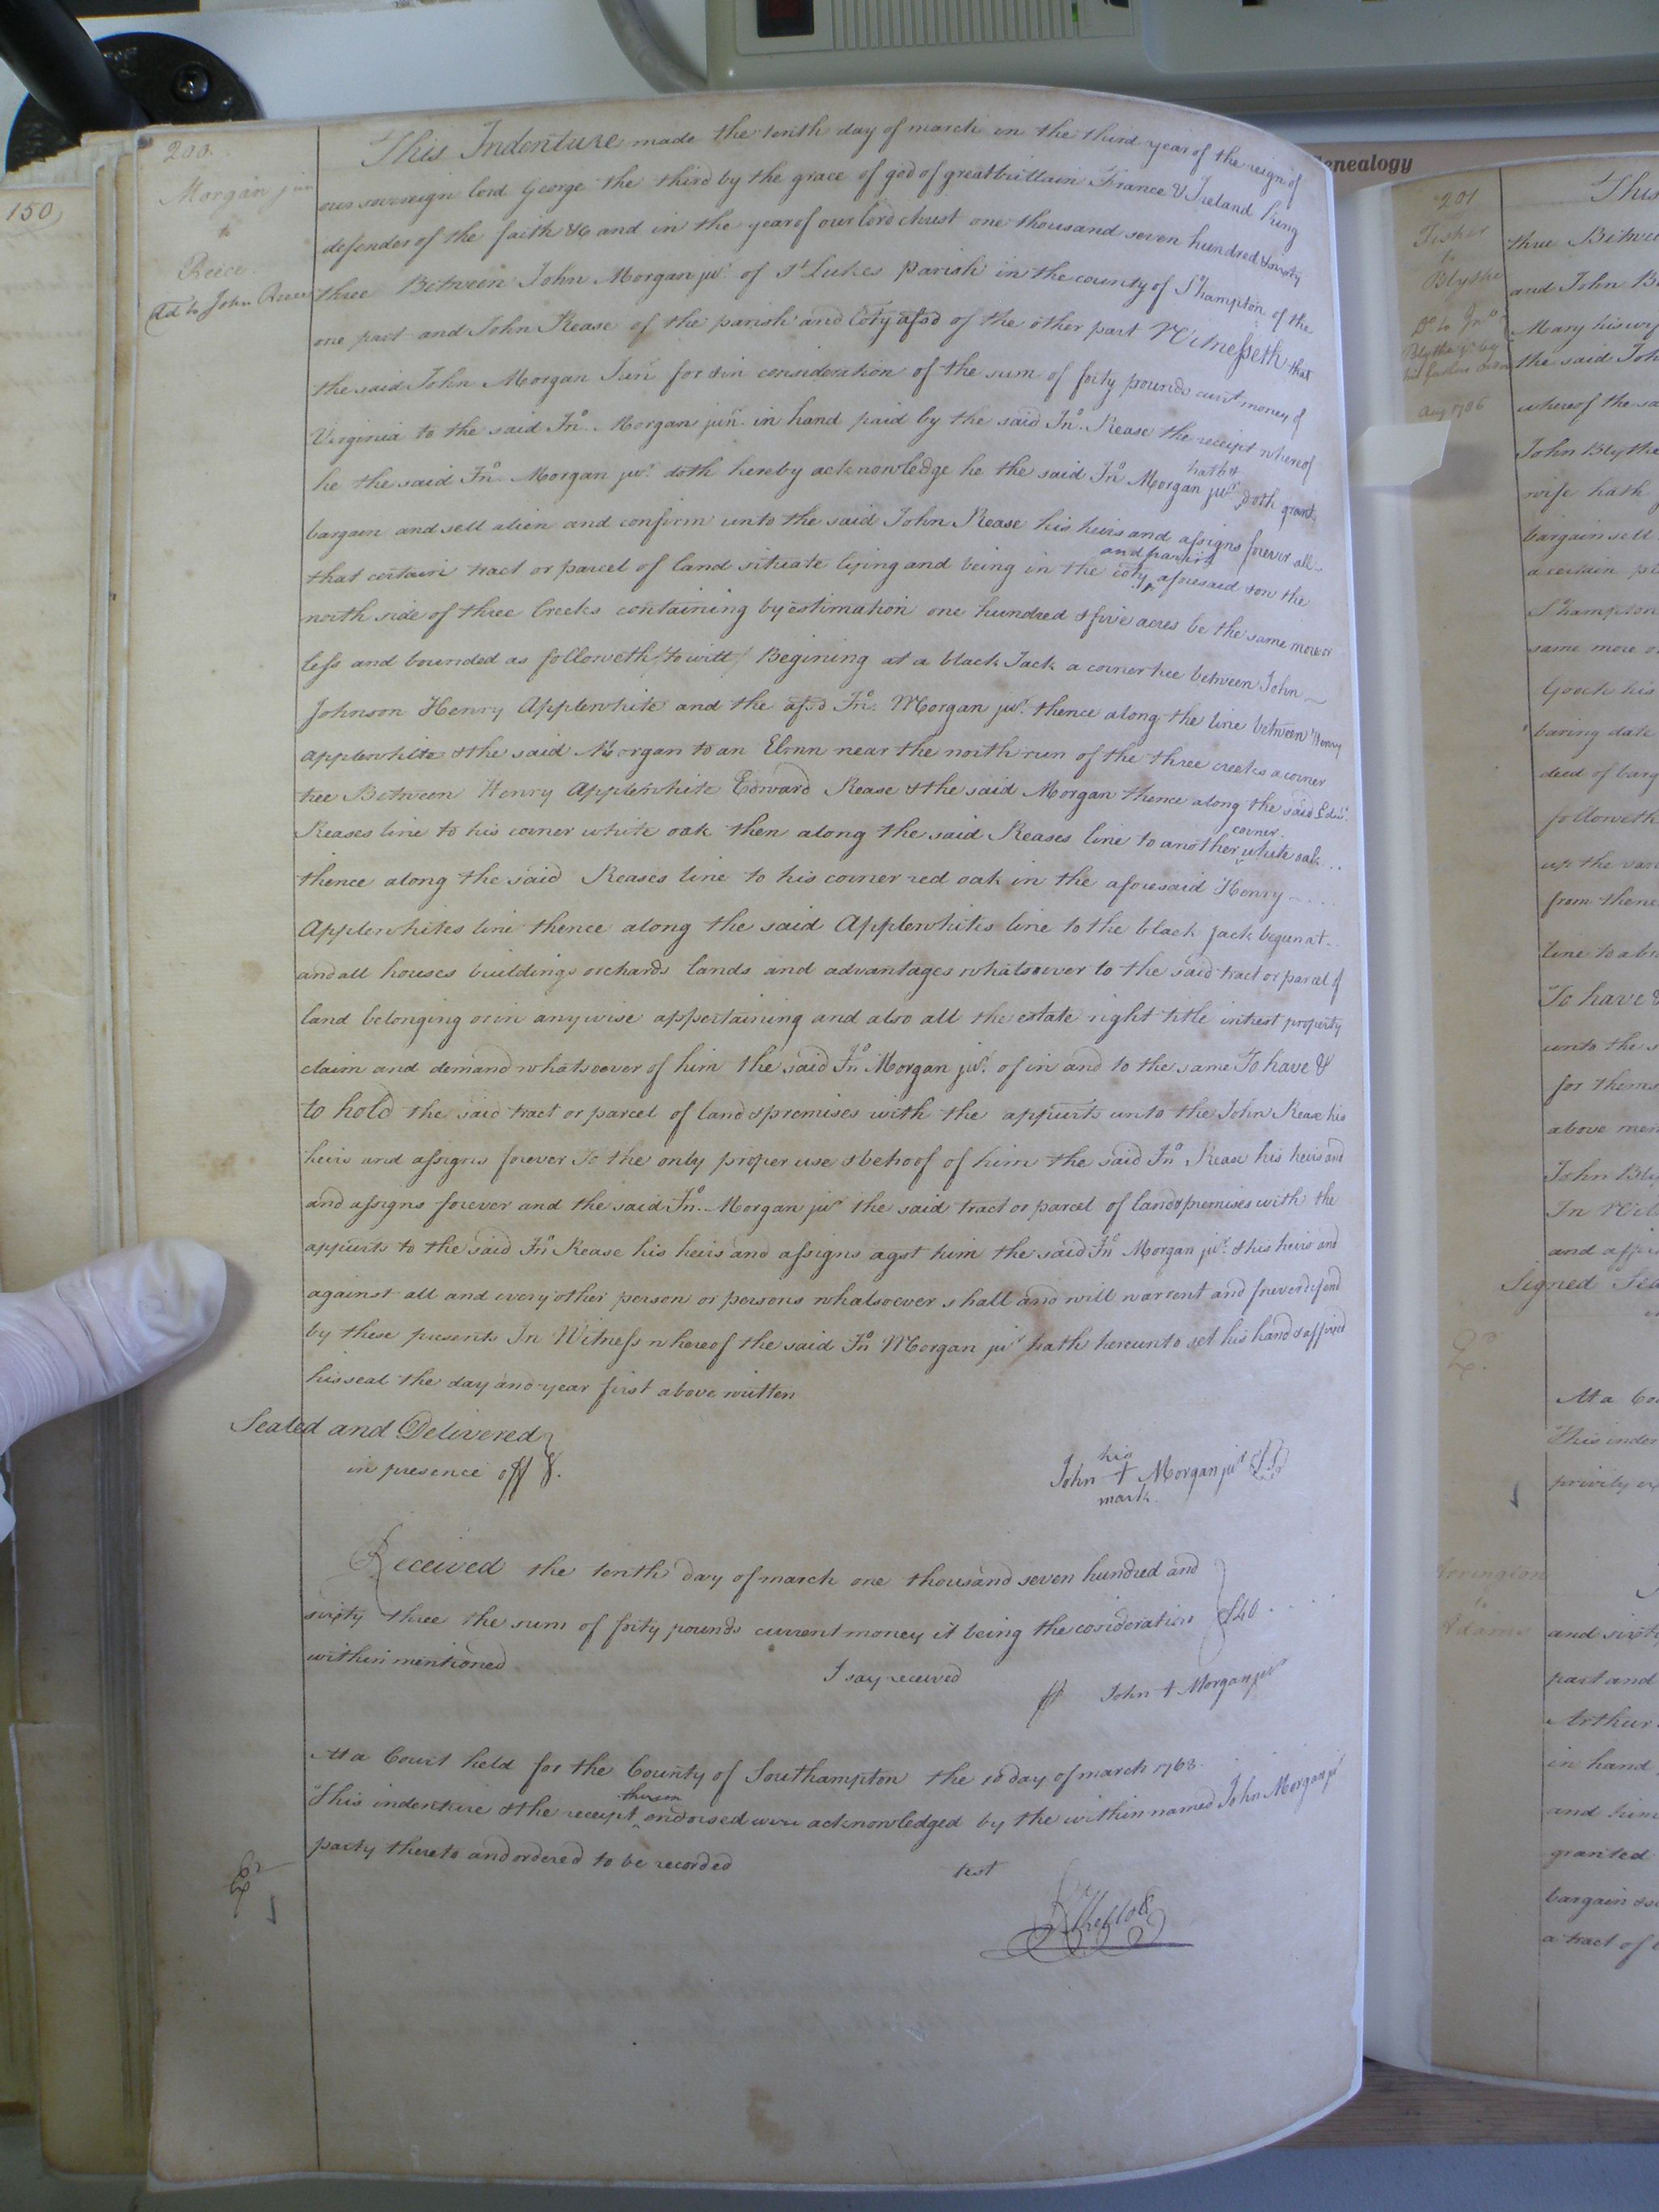 150
200.
Morgan jun
to
Reece
Dd to John Reece
This Indenture made the tenth day of march in the third year of the reign of
our sovereign lord George the third by the grace of god of greatbrittain France & Ireland king
defender of the faith &c and in the year of our lord christ one thousand seven hundred & sixty
three Between John Morgan junr. of St Lukes parish in the county of S'hampton of the
one part and John Rease of the parish and Coty afsd of the other part Witnesseth that
the said John Morgan Junr for & in consideration of the sum of forty pounds curnt money of
Virginia to the said Jno. Morgan junr. in hand paid by the said Jno. Rease the receipt whereof
he the said Jno. Morgan junr. doth hereby acknowledge he the said Jno Morgan junr. hath & doth grant
bargain and sell alien and confirm unto the said John Rease his heirs and assigns forever all
that certain tract or parcel of land situate lying and being in the coty and parish aforesaid & on the
north side of three Creeks containing by estimation one hundred & five acres be the same more or
less and bounded as followeth / to witt / Begining at a black Jack a corner tree between John
Johnson Henry Applewhite and the afsd Jno. Morgan junr. thence along the line between Henry
applewhite & the said Morgan to an Elmn near the north run of the three creeks a corner
tree Between Henry Applewhite Edward Rease & the said Morgan thence along the said Edwd.
Reases line to his corner white oak then along the said Reases line to another corner white oak
thence along the said Reases line to his corner red oak in the aforesaid Henry
Applewhites line thence along the said Applewhites line to the black jack begun at
and all houses buildings orchards lands and advantages whatsoever to the said tract or parcel of
land belonging or in anywise appertaining and also all the estate right title intrest property
claim and demand whatsoever of him the said Jno Morgan junr. of in and to the same To have &
to hold the said tract or parcel of land & premises with the appurts unto the John Rease his
heirs and assigns forever To the only proper use & behoof of him the said Jno Rease his heirs and
and assigns forever and the said Jno. Morgan junr the said tract or parcel of land & premises with the
appurts to the said Jno Rease his heirs and assigns agst him the said Jno Morgan junr. & his heirs and
against all and every other person or persons whatsoever shall and will warrent and forever defend
by these presents In Witness whereof the said Jno Morgan junr hath hereunto set his hand & affixed
his seal the day and year first above written
Sealed and Delivered
in presence off
his
John + Morgan junr LS
mark
Received the tenth day of march one thousand seven hundred and
sixty three the sum of forty pounds current money it being the cosideration £40
within mentioned
I say received
John + Morgan junr
At a Court held for the County of Southampton the 10 day of march 1763.
This indenture & the receipt thereon endorsed were acknowledged by the within named John Morgan jr
party thereto and ordered to be recorded
test
Exr
enealogy
201
Fisher
to
Blythe
Aug 1786
This
three Betwee
and John B
Mary his wif
the said Joh
whereof the sa
John Blythe
wife hath
bargain sell
a certain pi
S'hampton
same more o
Gooch his
baring date
deed of barg
followeth
up the vari
from thenc
line to a br
To have &
unto the s
for thems
above men
John Bly
In Wit
and affi
Signed Sea
At a Cou
This inden
privily ex
to
Adams
and sixty
part and
Arthur
in hand
and him
granted
bargain & s
a tract of l